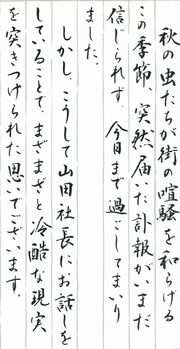 秋の虫たちが街の喧騒を和らげる
この季節、突然届いた訃報がいまだ
信じられず、今日まで過ごしてまいり
ました。
しかし、こうして山田社長にお話しを
していることで、まざまざと冷酷な現実
を突きつけられた思いでございます。